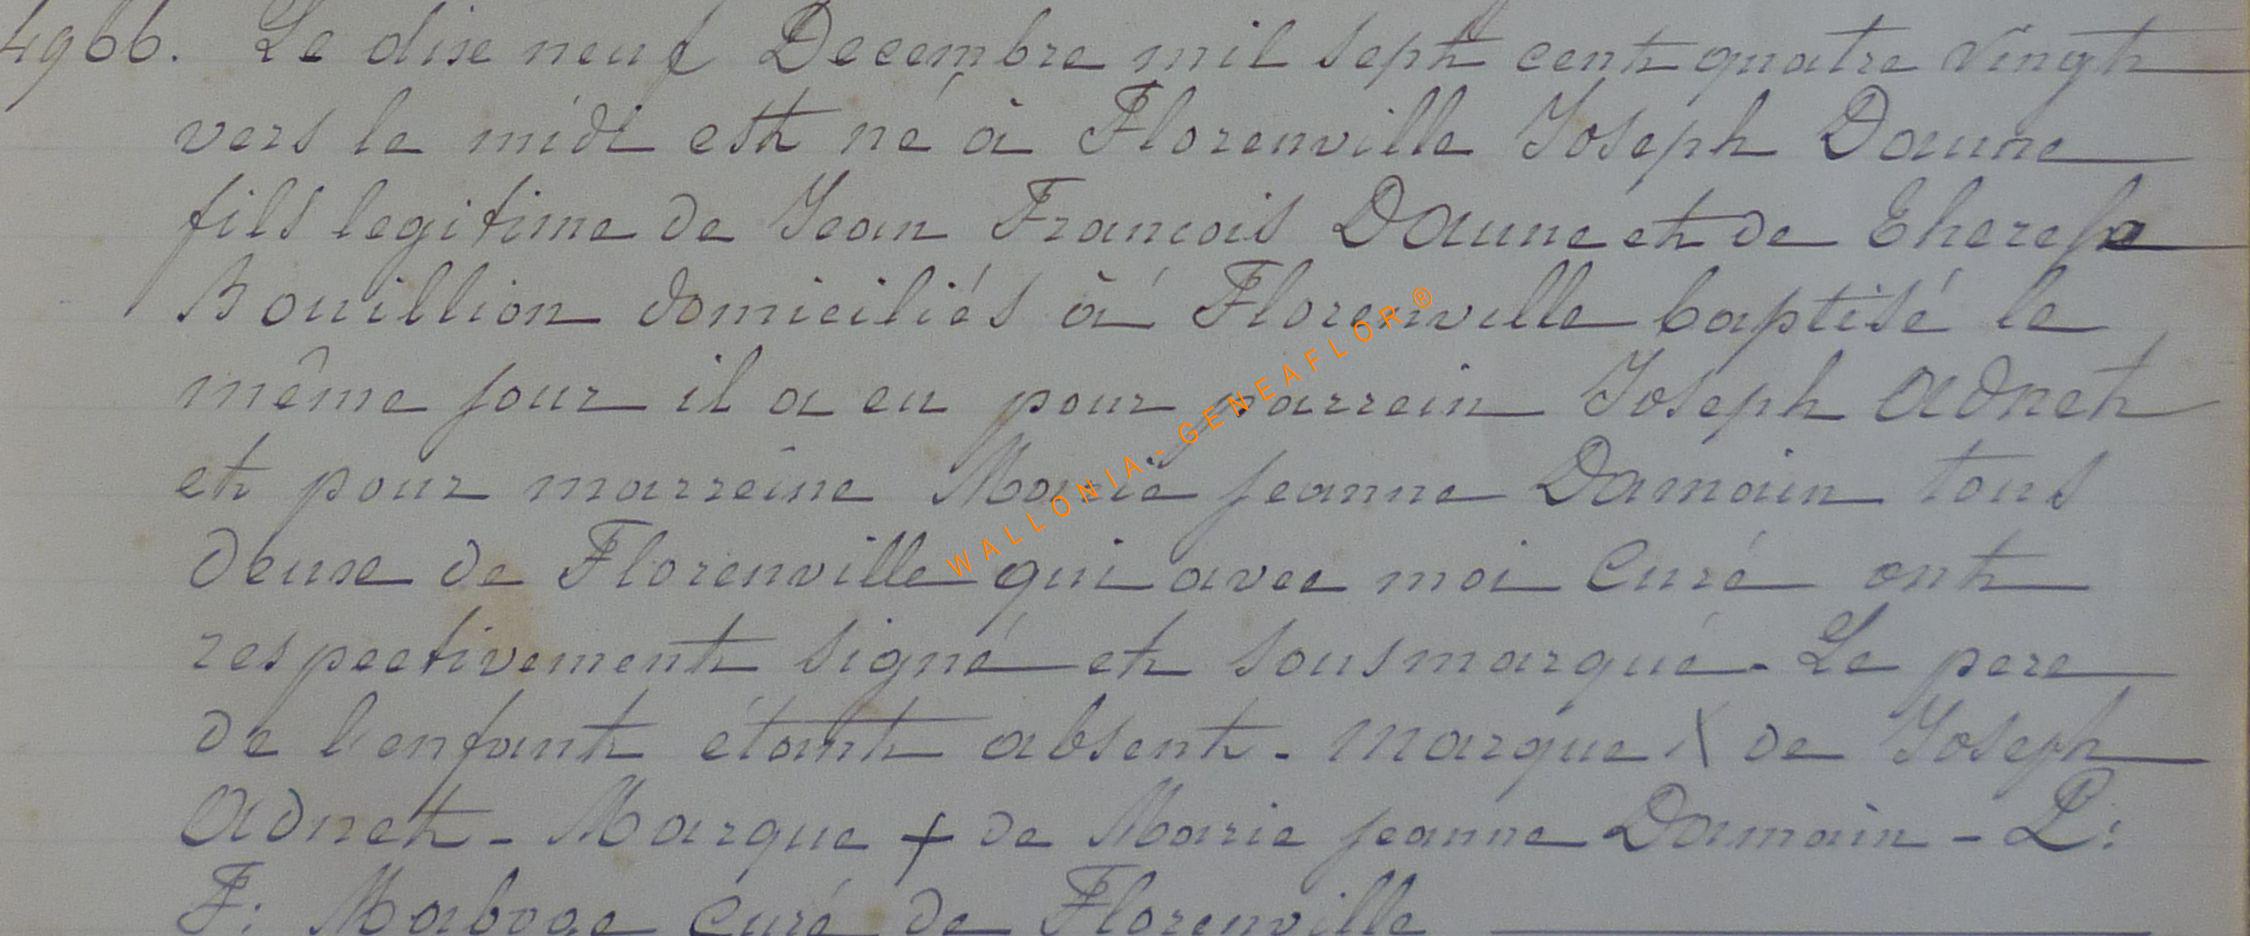 4966. Le dixe neuf Decembre mil sept cent quatre vingt
vers le midi est né à Florenville Joseph Daune
fils legitime de Jean Francois Daune et de Therese
Bouillion domiciliés à Florenville baptisé le
même jour il a eu pour parrein Joseph Adnet
et pour marreine Marie jeanne Damain tous
deuxe de Florenville qui avec moi Curé ont
respectivement signé et sousmarqué - Le pere
de l'enfant étant absent - Marque X de Joseph
Adnet - Marque + de Marie jeanne Damain - P:
F: curé de Florenville
WALLONIA-GENEAFLOR®